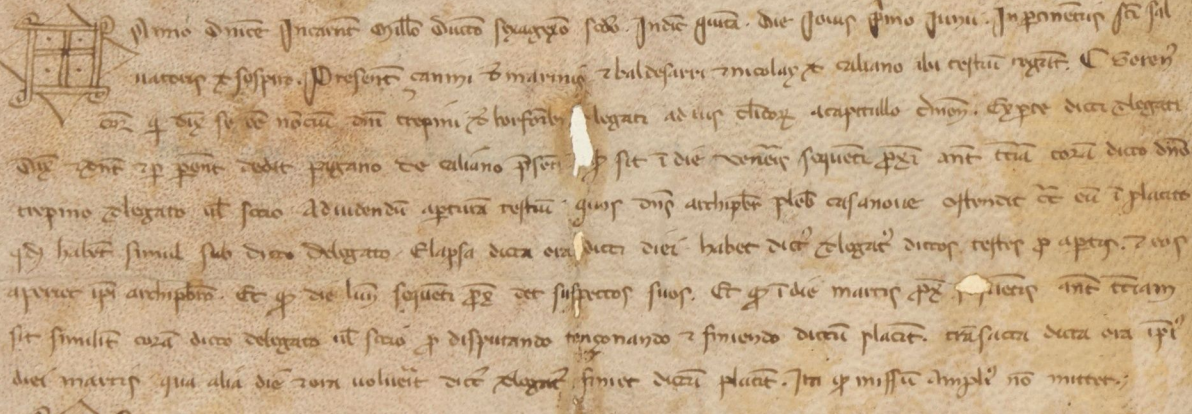 Anno dnice Incarnt Millo Ducto sexagxo scdo. Indic quita. Die Iovis pmo Iunii. In ptinetiis sci sal
vatoris d sospiro. Present canni d marinis & baldesarri & nicolay d caliano ibi testiu rogat. C
cor q dix se ee nociu dni crepini d legati ad ius clicor a capitullo. Ex pte dicti dlegati
dix & p pont dedit pagano de caliano pseti q sit i die veneis sequeti pxi ant tcia cora dicto dno
crepino dlegato ul socio. Ad videndu aptura testiu quos dns archipbt pleb casanove ostendit cot eu i placito
qd habet simul sub dicto delegato. Elapsa dicta ora dicti diei habet dict dlegat dictos testes p aptis. & eos
aperiet ipi archipbro. Et q die lun sequeti px det suspectos suos. Et q i die martis px ant tciam
sit similit cora dicto delegato ul socio p disputando tonçonando & finiendo dictu placit. transacta dicta ora ipi
diei martis qua alia die & ora voluerit dict dlegat finiet dictu placit. Ita q missu ampli no mittet.